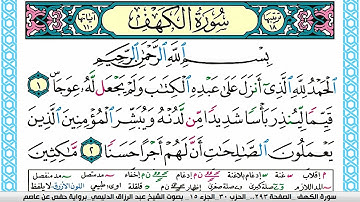 ترتيبها ١٨
سُورَةُ الكَهْفِ
آياتها ١١٠
بِسْمِ اللَّهِ الرَّحْمَٰنِ الرَّحِيمِ
الْحَمْدُ لِلَّهِ الَّذِي أَنزَلَ عَلَىٰ عَبْدِهِ الْكِتَابَ وَلَمْ يَجْعَل لَّهُ عِوَجًا ۜ ١
قَيِّمًا لِّيُنذِرَ بَأْسًا شَدِيدًا مِّن لَّدُنْهُ وَيُبَشِّرَ الْمُؤْمِنِينَ الَّذِينَ
يَعْمَلُونَ الصَّالِحَاتِ أَنَّ لَهُمْ أَجْرًا حَسَنًا ٢ مَّاكِثِينَ
سورة الكهف الصفحة ٢٩٣ الحزب ٣٠ الجزء ١٥ بصوت الشيخ عبد الرزاق الدليمي برواية حفص عن عاصم